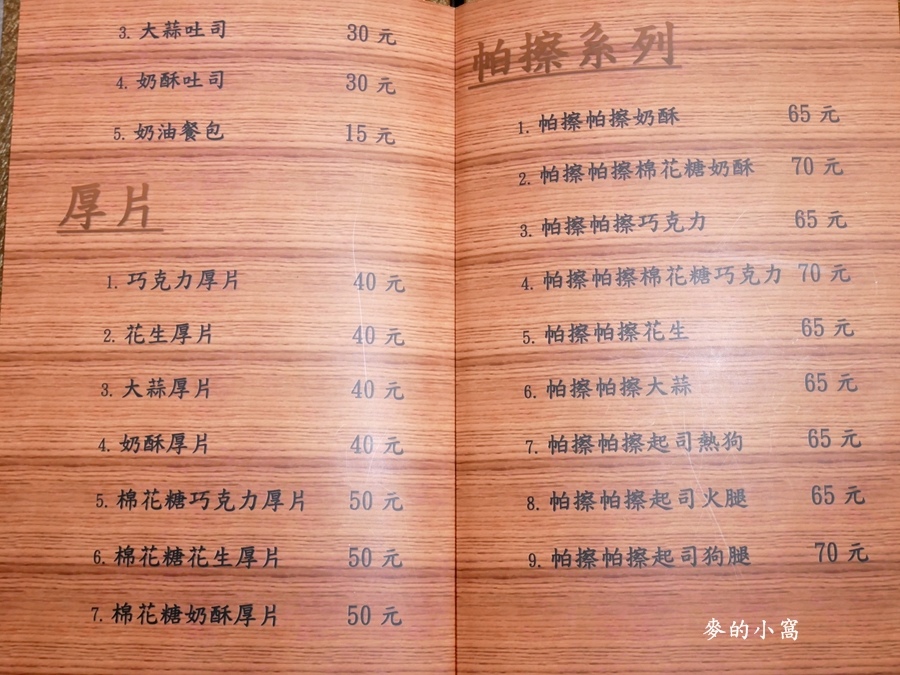 3. 大蒜吐司 30 元
4. 奶酥吐司 30 元
5. 奶油餐包 15 元
厚片
1. 巧克力厚片 40 元
2. 花生厚片 40 元
3. 大蒜厚片 40 元
4. 奶酥厚片 40 元
5. 棉花糖巧克力厚片 50 元
6. 棉花糖花生厚片 50 元
7. 棉花糖奶酥厚片 50 元
帕擦系列
1. 帕擦帕擦奶酥 65 元
2. 帕擦帕擦棉花糖奶酥 70 元
3. 帕擦帕擦巧克力 65 元
4. 帕擦帕擦棉花糖巧克力 70 元
5. 帕擦帕擦花生 65 元
6. 帕擦帕擦大蒜 65 元
7. 帕擦帕擦起司熱狗 65 元
8. 帕擦帕擦起司火腿 65 元
9. 帕擦帕擦起司狗腿 70 元
麥的小窩